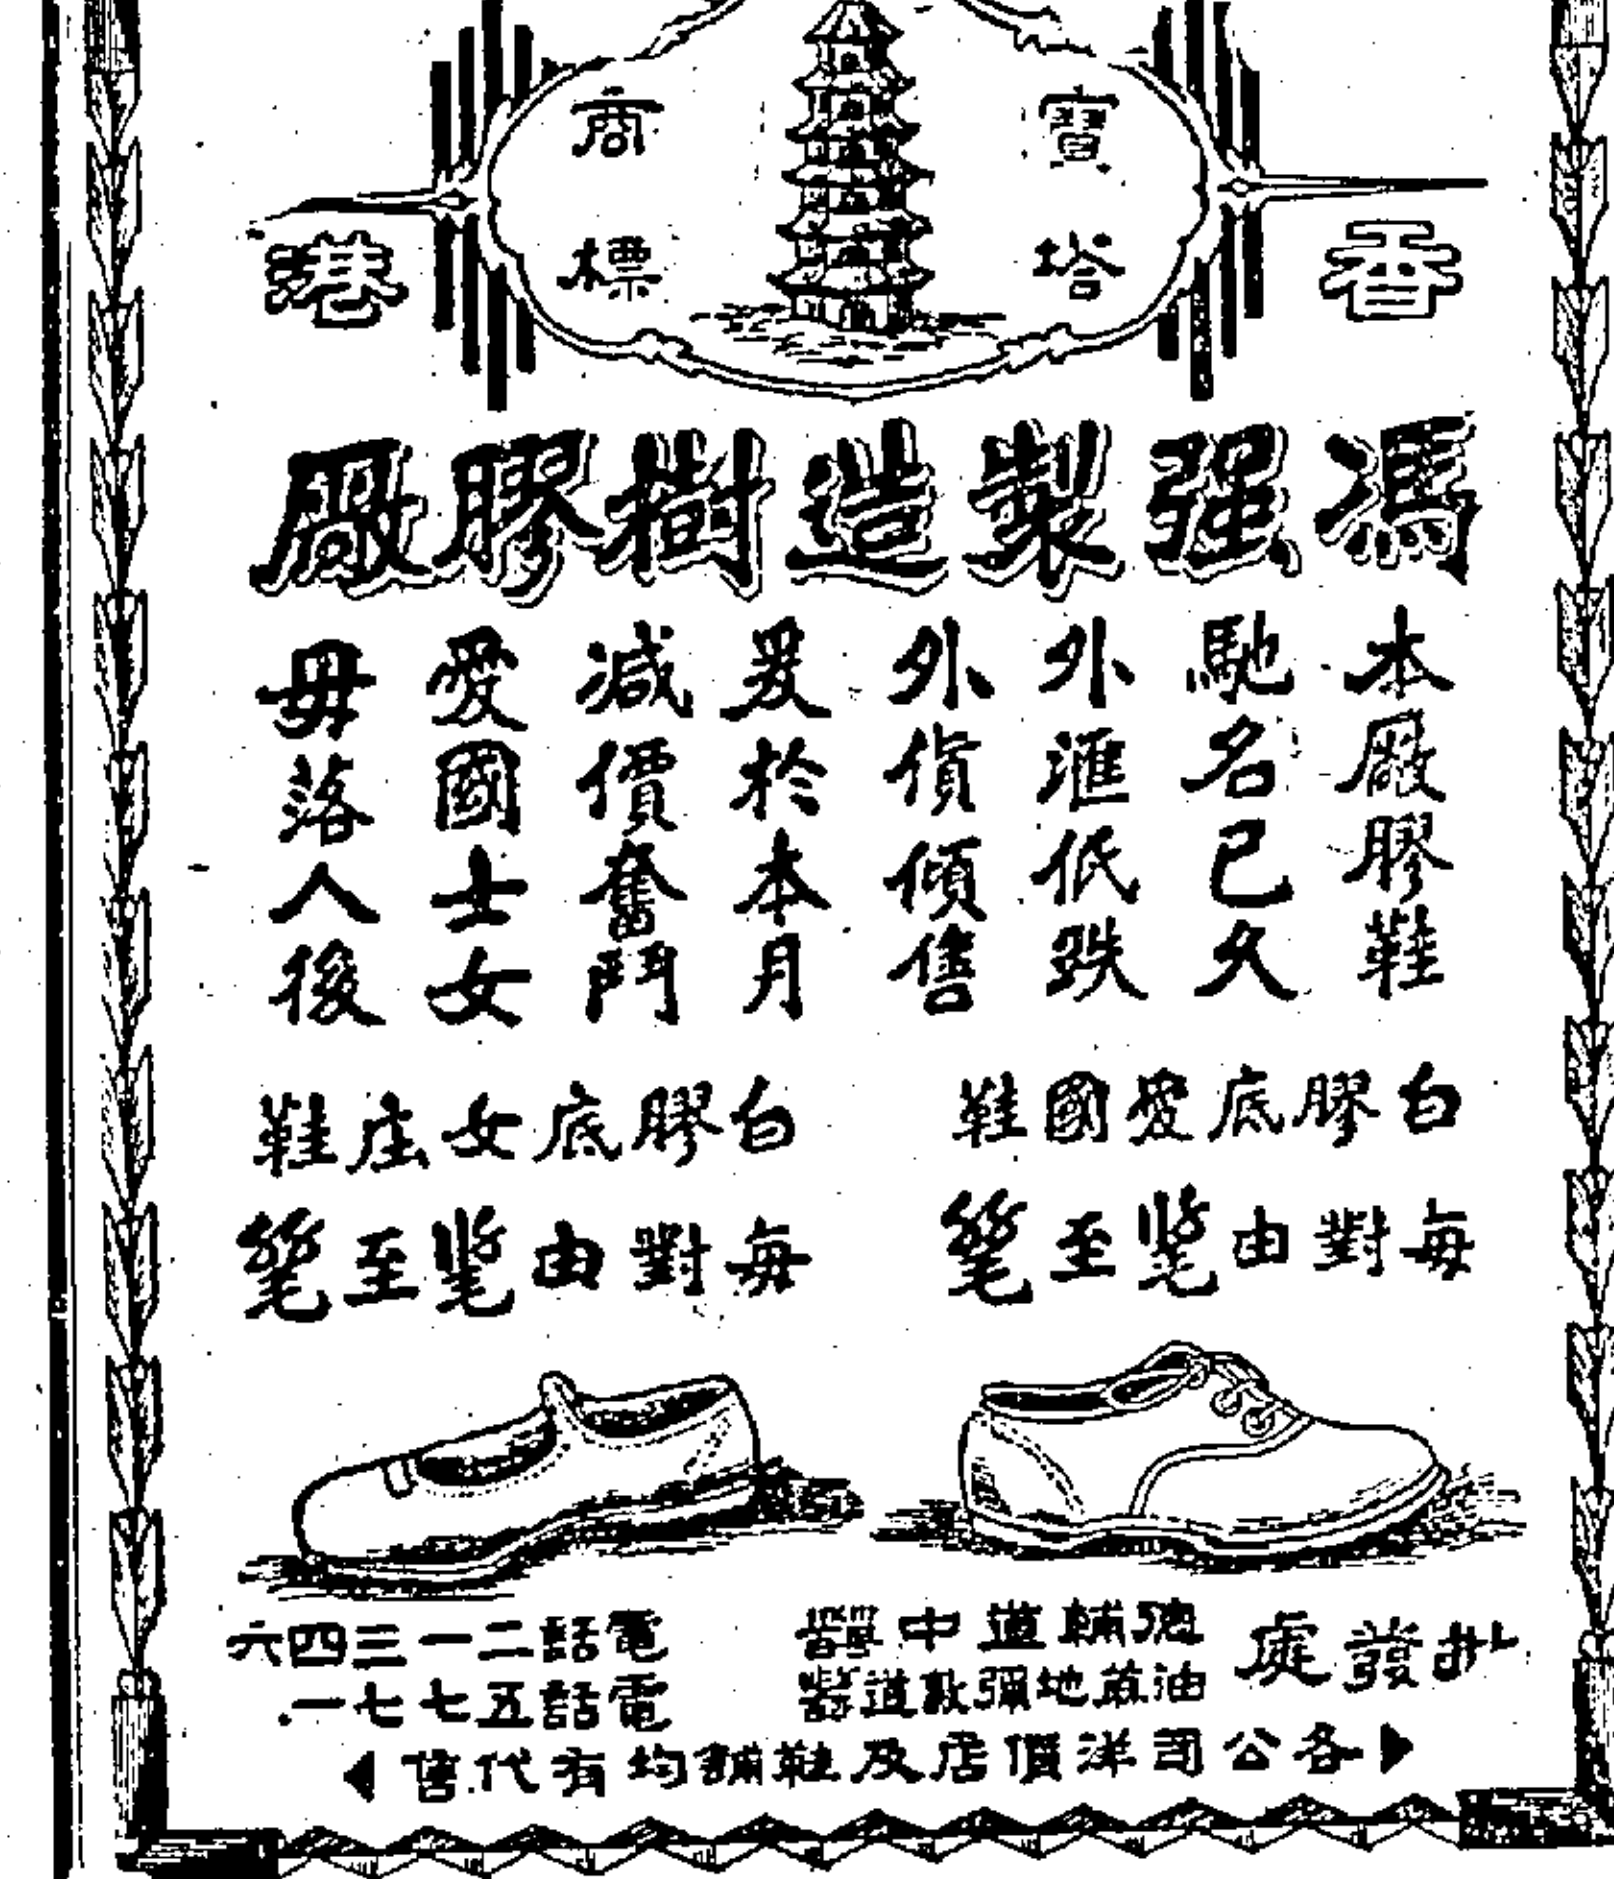 寶塔
商標
香港
馮强製造樹膠廠
本廠膠鞋
馳名已久
外滙低跌
外貨傾售
爰於本月
減價奮鬥
愛國士女
毋落人後
白膠底愛國鞋
每對由至
白膠底女庄鞋
每對由至
批發處
德輔道中
油蔴地彌敦道
電話二一三四六
電話五七七一
各公司洋貨店及鞋舖均有代售